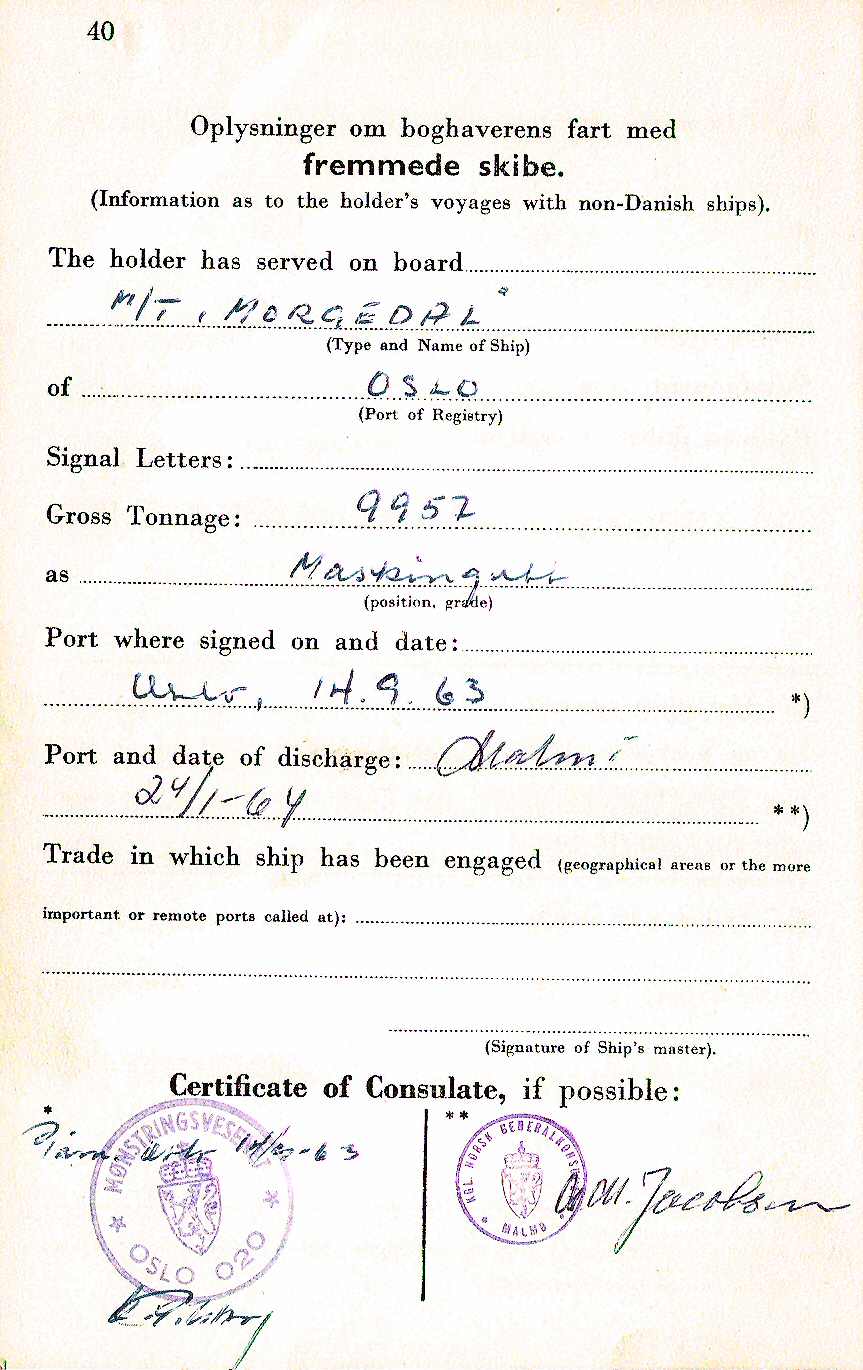 40
Oplysninger om boghaverens fart med
fremmede skibe.
(Information as to the holder's voyages with non-Danish ships).
The holder has served on board
M/T, MORGEDAL"
(Type and Name of Ship)
of OSLO
(Port of Registry)
Signal Letters:
Gross Tonnage: 9957
as Maskingutt
(position, grade)
Port where signed on and date:
Oslo, 14.9.63 *)
Port and date of discharge: Malmö
24/1-64 **)
Trade in which ship has been engaged (geographical areas or the more
important or remote ports called at):
(Signature of Ship's master).
Certificate of Consulate, if possible:
* **
MØNSTRINGSVESENET
OSLO 020
KGL. NORSK GENERALKONSULAT
MALMØ
M. Jacobsen